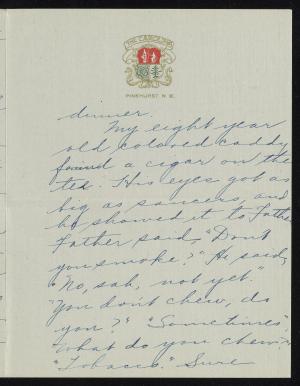 THE CAROLINA
PINEHURST, N. C.
dinner.
My eight year
old colored caddy
found a cigar on the
tee. His eyes got as
big as saucers, and
he showed it to Father.
Father said, "Don't
you smoke?" He said,
"No, sah, not yet."
"You don't chew, do
you?" "Sometimes".
"What do you chew?"
"Tobacco." Sure